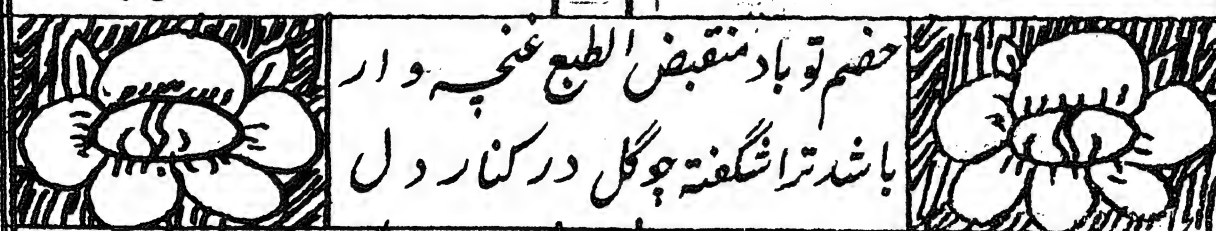 خصم تو باد منقبض الطبع غنچہ وار
باشد ترا شگفتہ چو گل در کنار دل